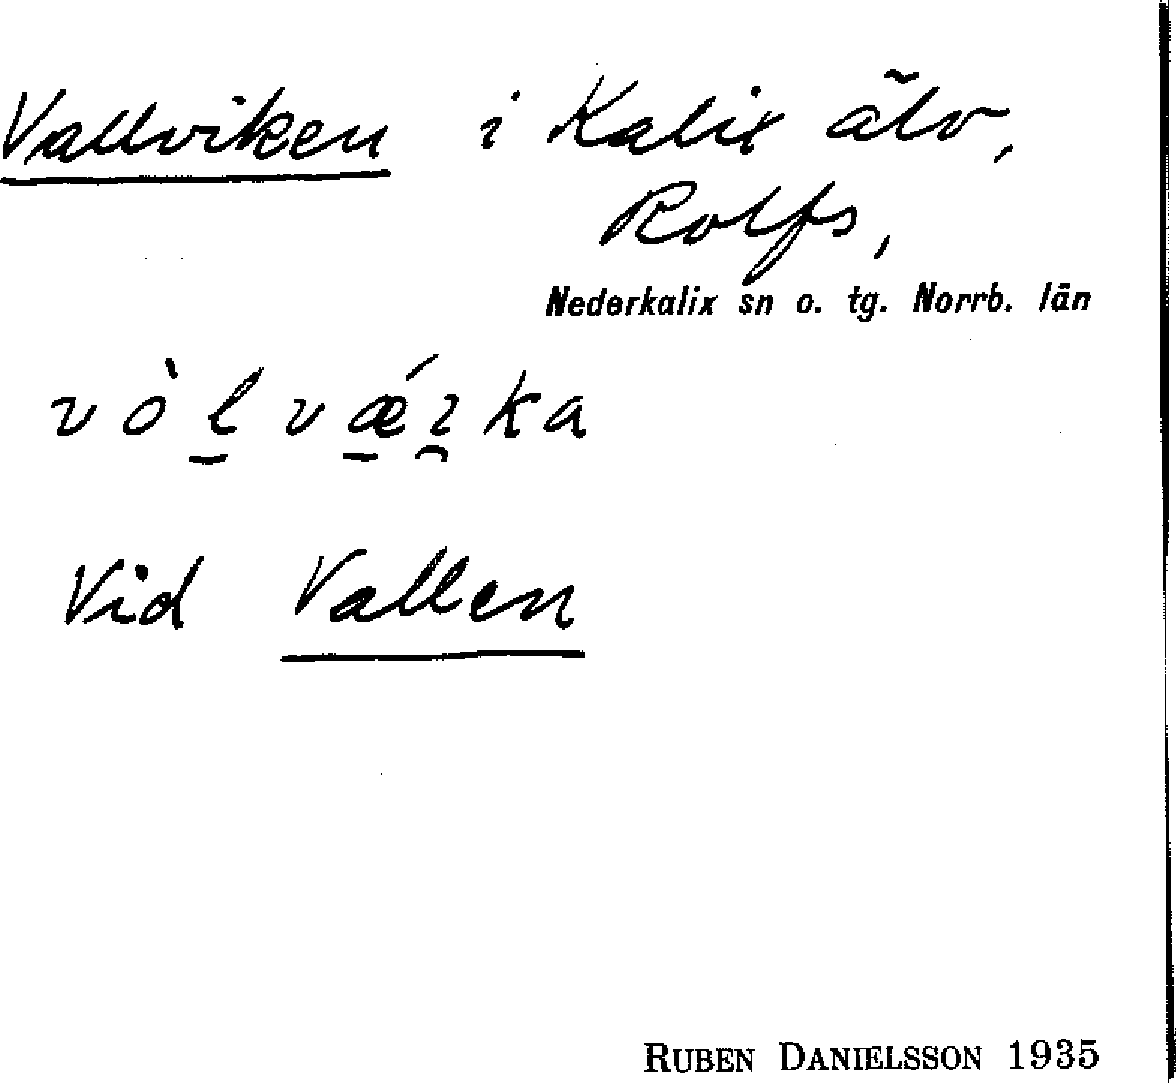 Vallviken i Kalix älv,
Rolfs,
Nederkalix sn o. tg. Norrb. län
vò̀l̠vǽ̠ı̯ka
Vid Vallen
RUBEN DANIELSSON 1935